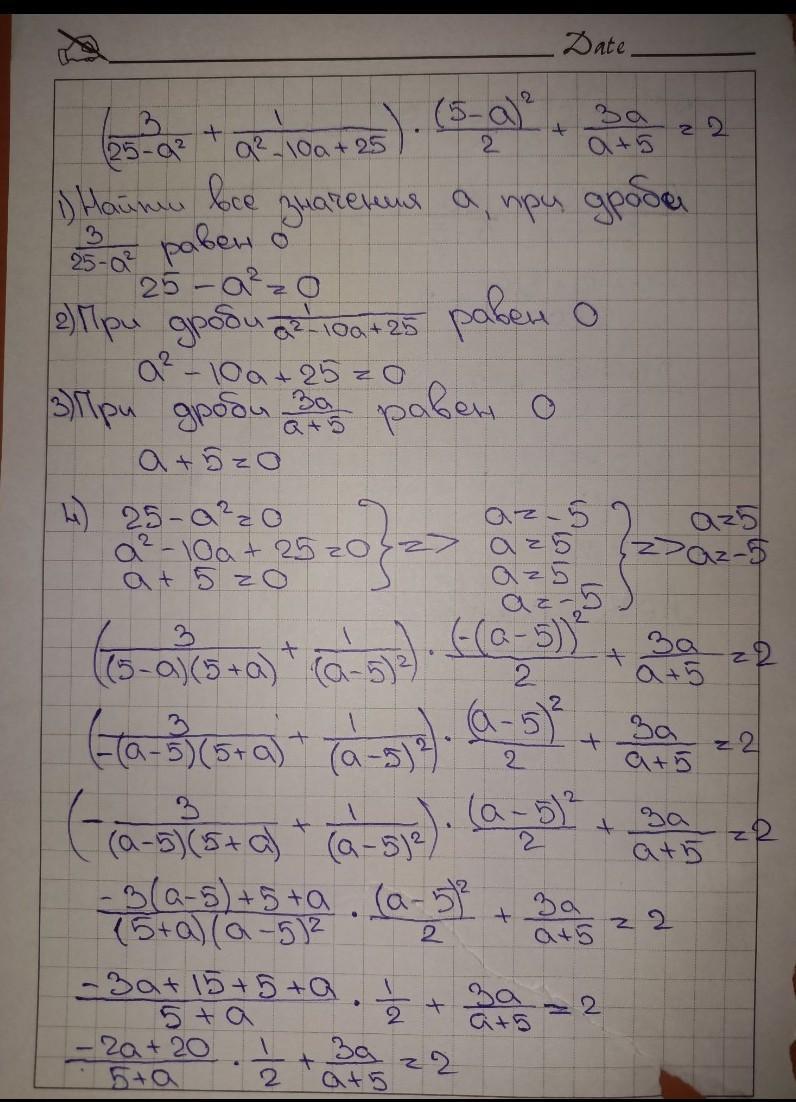 Date
(3/(25-a²) + 1/(a²-10a+25)) · (5-a)²/2 + 3a/(a+5) = 2
1) Найти все значения a, при дроби
3/(25-a²) равен 0
25 - a² = 0
2) При дроби 1/(a²-10a+25) равен 0
a² - 10a + 25 = 0
3) При дроби 3a/(a+5) равен 0
a + 5 = 0
4) 25 - a² = 0
a² - 10a + 25 = 0
a + 5 = 0
} =>
a = -5
a = 5
a = 5
a = -5
} =>
a = 5
a = -5
(3/((5-a)(5+a)) + 1/(a-5)²) · (-(a-5))²/2 + 3a/(a+5) = 2
(3/(-(a-5)(5+a)) + 1/(a-5)²) · (a-5)²/2 + 3a/(a+5) = 2
(-3/((a-5)(5+a)) + 1/(a-5)²) · (a-5)²/2 + 3a/(a+5) = 2
(-3(a-5)+5+a)/((5+a)(a-5)²) · (a-5)²/2 + 3a/(a+5) = 2
(-3a+15+5+a)/(5+a) · 1/2 + 3a/(a+5) = 2
(-2a+20)/(5+a) · 1/2 + 3a/(a+5) = 2